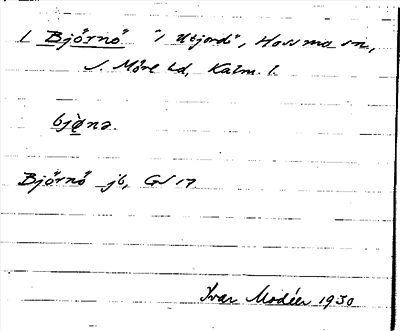 1 Björnö "i Utjord", Hossmo sn,
S. Möre hd, Kalm. l.
bjø̀nə
Björnö jb, GV 17
Ivar Modéer 1930